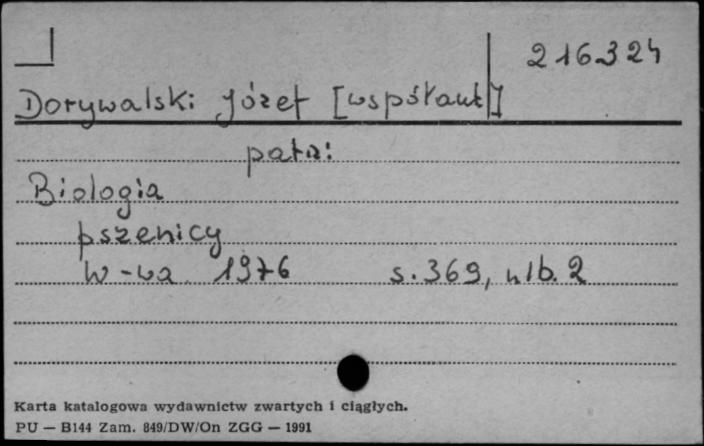 216324
Dorywalski Józef [współaut]
patrz:
Biologia
pszenicy
W-wa 1976 s. 369, nlb. 2
Karta katalogowa wydawnictw zwartych i ciągłych.
PU — B144 Zam. 849/DW/On ZGG — 1991